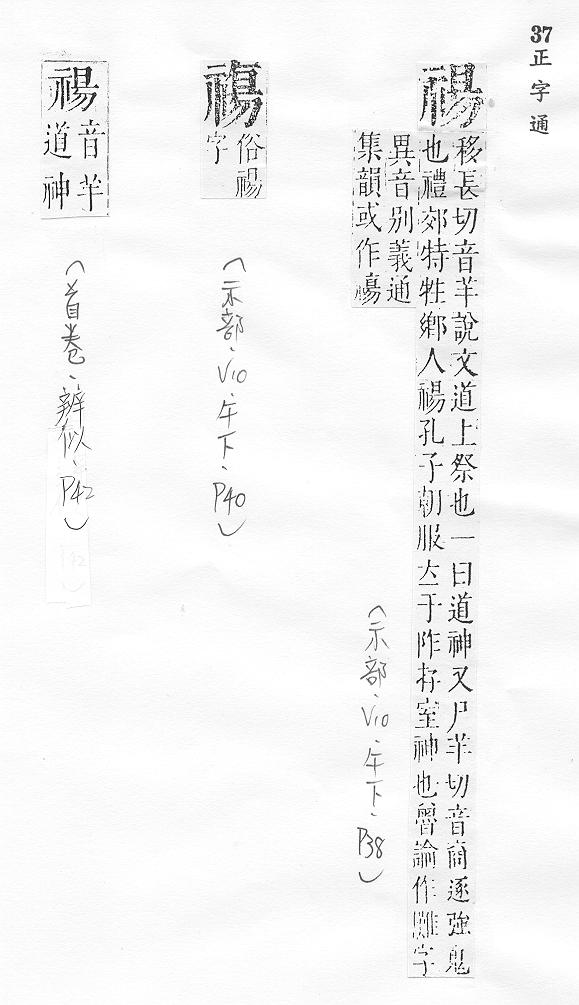 37 正字通
禓
移長切音羊說文道上祭也一曰道神又尸羊切音商逐強鬼
也禮郊特牲鄉人禓孔子朝服立于阼存室神也魯論作儺字
異音別義通
集韻或作
(示部、V10、午下、P38)
俗禓
字
(示部、V10、午下、P40)
禓
音羊
道神
(首卷、辨似、P42)